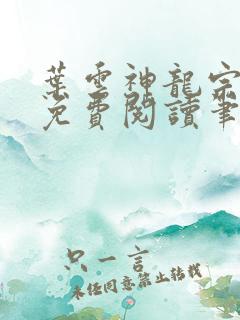 葉雲神龍宗
免費閱讀筆
只一言
未經同意禁止轉載